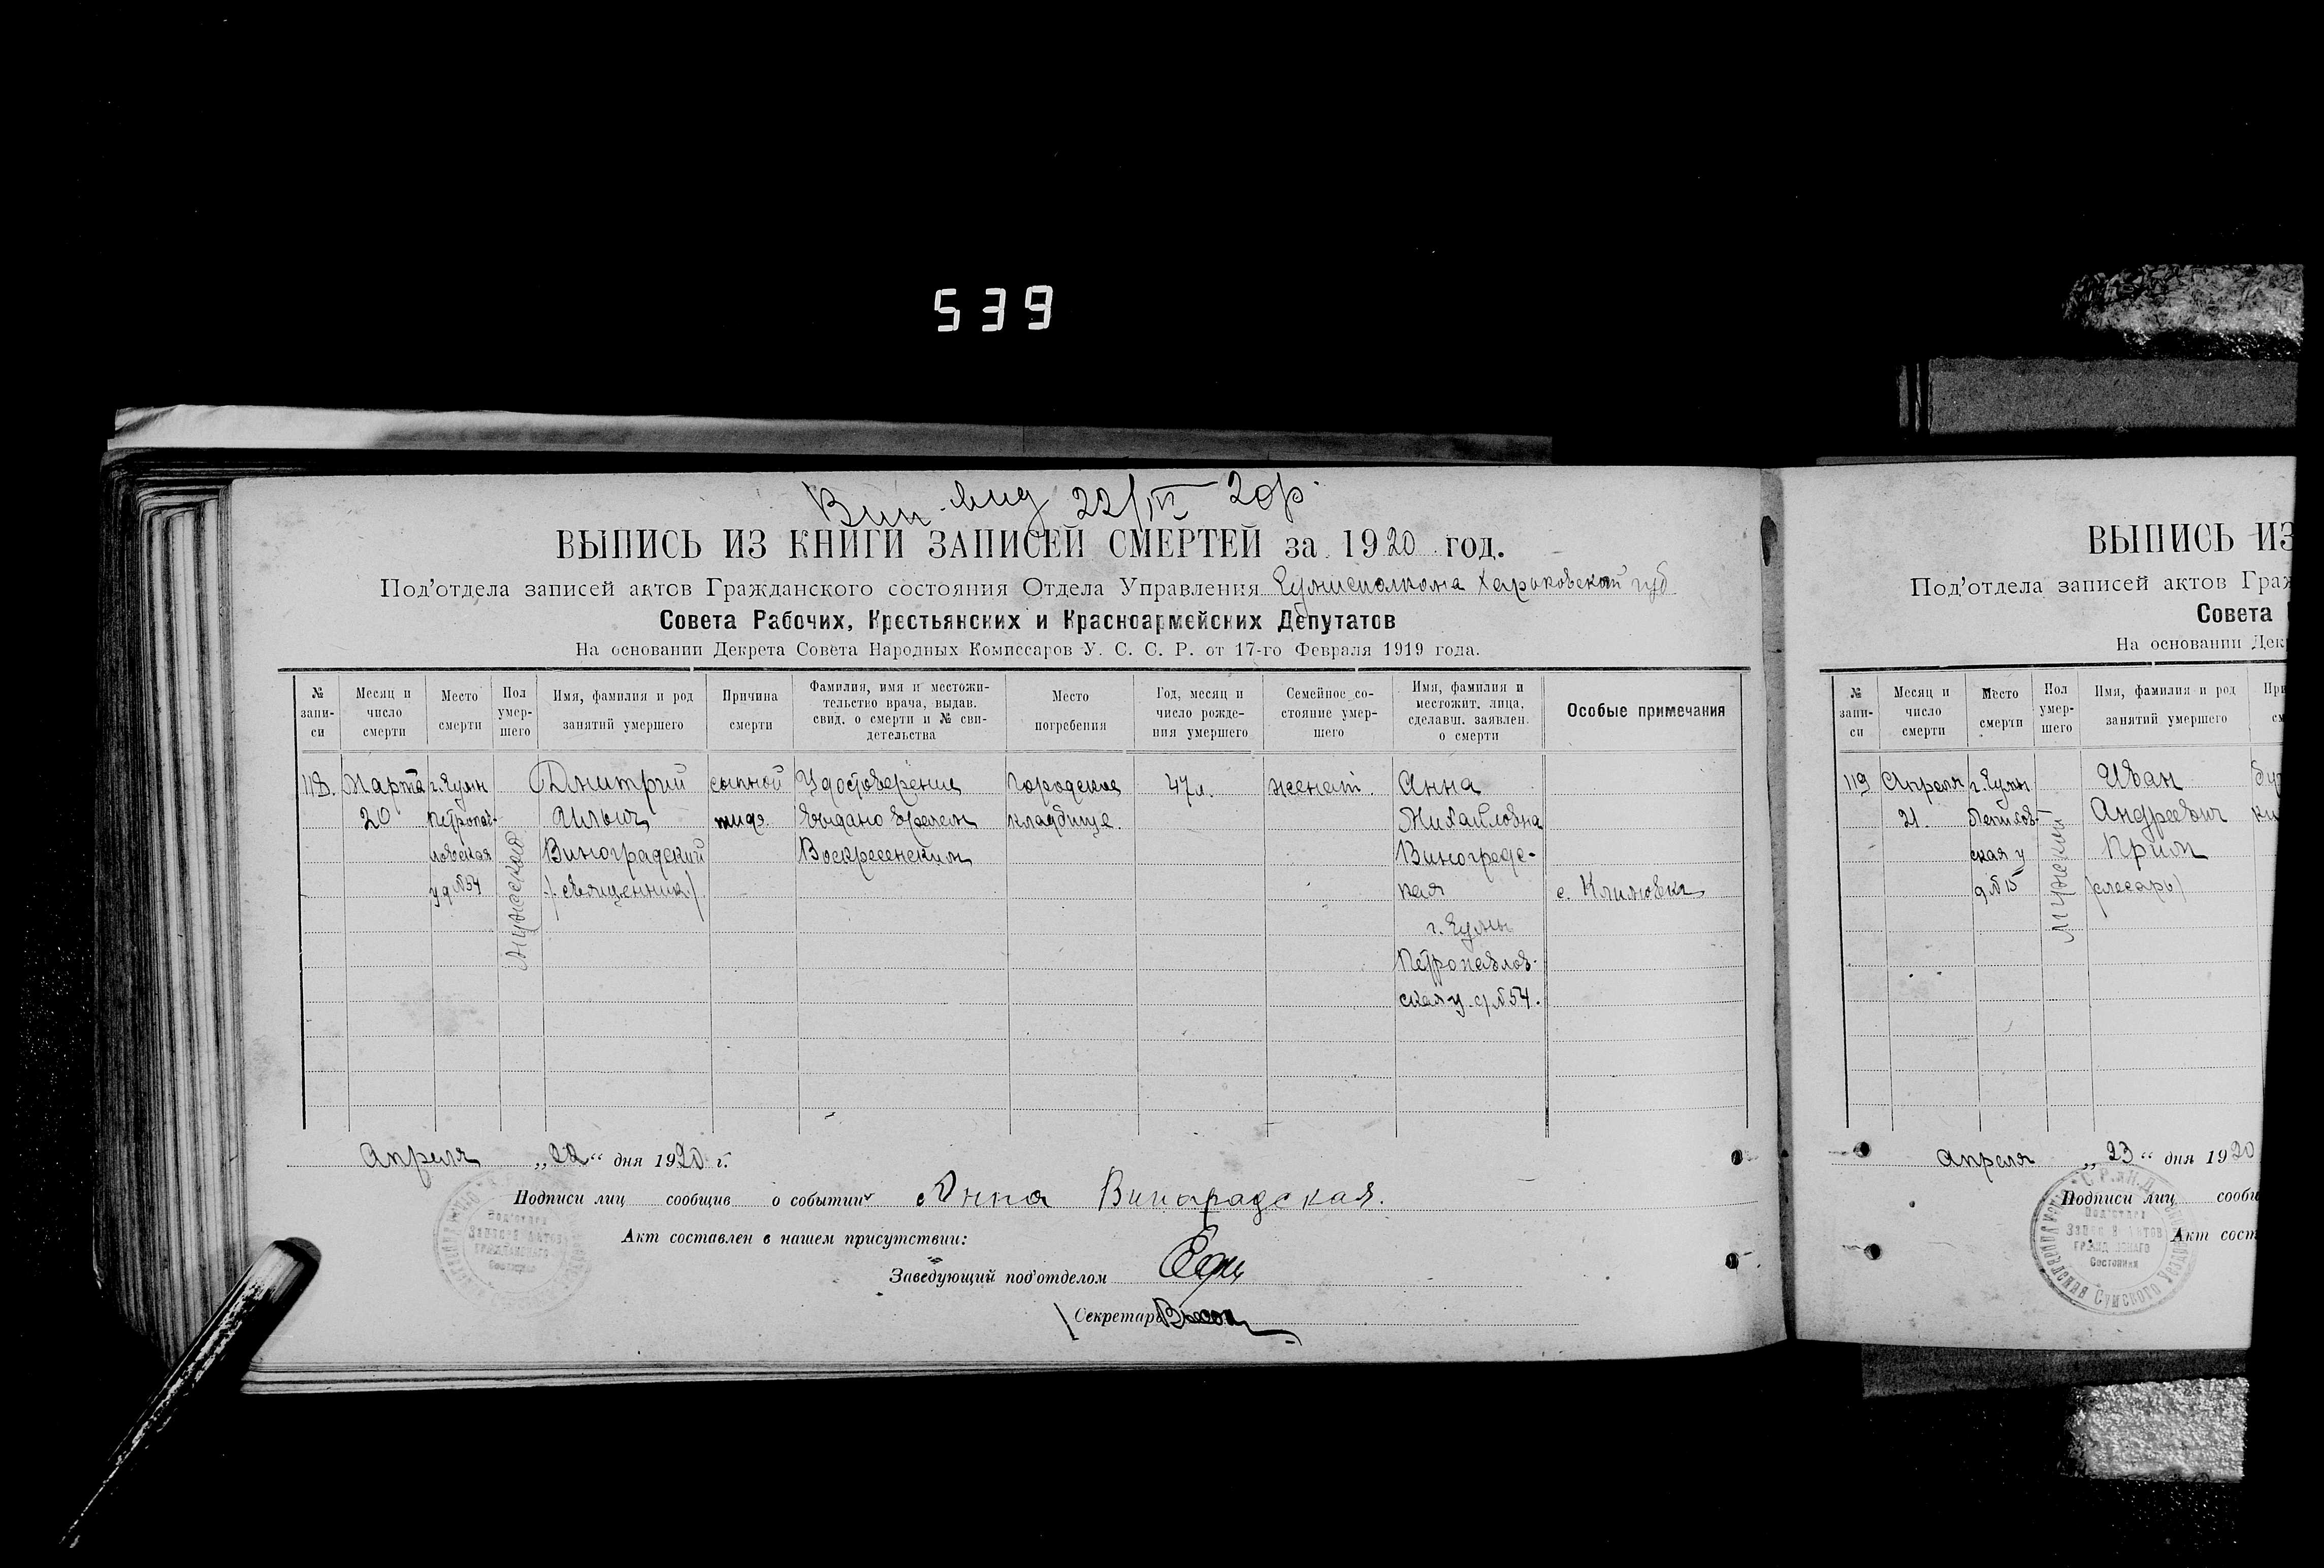 539
Вып. выд 22/IV 20 р.
ВЫПИСЬ ИЗ КНИГИ ЗАПИСЕЙ СМЕРТЕЙ за 1920 год.
Под'отдела записей актов Гражданского состояния Отдела Управления Сумисполкома Харьковской губ
Совета Рабочих, Крестьянских и Красноармейских Депутатов
На основании Декрета Совета Народных Комиссаров У. С. С. Р. от 17-го Февраля 1919 года.
№ запи-
си
Месяц и
число
смерти
Место
смерти
Пол
умер-
шего
Имя, фамилия и род
занятий умершего
Причина
смерти
Фамилия, имя и местожи-
тельство врача, выдав.
свид. о смерти и № сви-
детельства
Место
погребения
Год, месяц и
число рожде-
ния умершего
Семейное со-
стояние умер-
шего
Имя, фамилия и
местожит. лица,
сделавш. заявлен.
о смерти
Особые примечания
118.
Марта
20
г. Сумы
Петропав-
ловская
у д №54
Мужской
Дмитрий
Ильич
Виноградский
/священник/
сыпной
тиф.
Удостоверение
выдано врачем
Воскресенским
Городское
кладбище.
47 л.
женат.
Анна
Михайловна
Виноградс-
кая
г. Сумы
Петропавлов-
ская у. д №54.
с. Климовка
Апреля „22“ дня 1920 г.
Подписи лиц сообщив о событии Анна Винарадская.
Акт составлен в нашем присутствии:
Заведующий под'отделом
Секретарь
Под'отдел
Записей Актов
Гражданского
Состояния
ВЫПИСЬ ИЗ
Под'отдела записей актов Граж
Совета
На основании Дек
№
запи-
си
Месяц и
число
смерти
Место
смерти
Пол
умер-
шего
Имя, фамилия и род
занятий умершего
При
см
119
Апреля
21.
г. Сумы
ская у
д №15
Мужской
Иван
Андреевич
Прийм
/слесарь/
апреля „23“ дня 1920
Подписи лиц сообщ
Акт сост
Под'отдел
Записей Актов
Гражданского
Состояния
Сумского Уездного